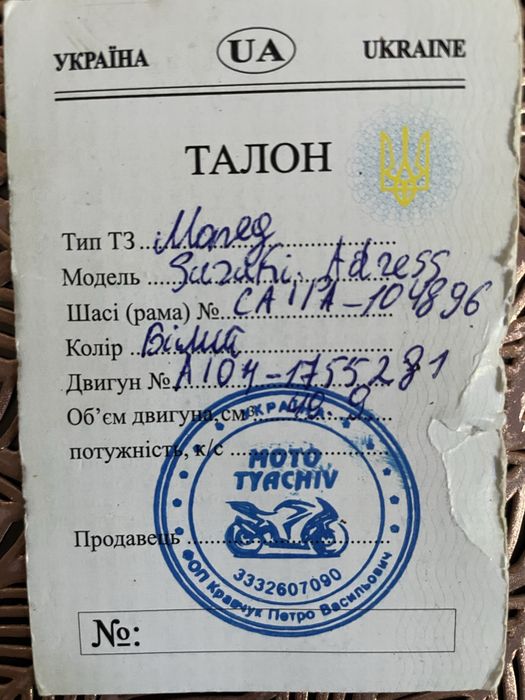 УКРАЇНА UA UKRAINE
ТАЛОН
Тип ТЗ Мопед
Модель Suzuki. Adress
Шасі (рама) № CA11A-104896
Колір Білий
Двигун № A104-1755281
Об'єм двигуна см³ 49.9
потужність, к/с
УКРАЇНА
MOTO
TYACHIV
Продавець
3332607090
ФОП Кравчук Петро Васильович
№: